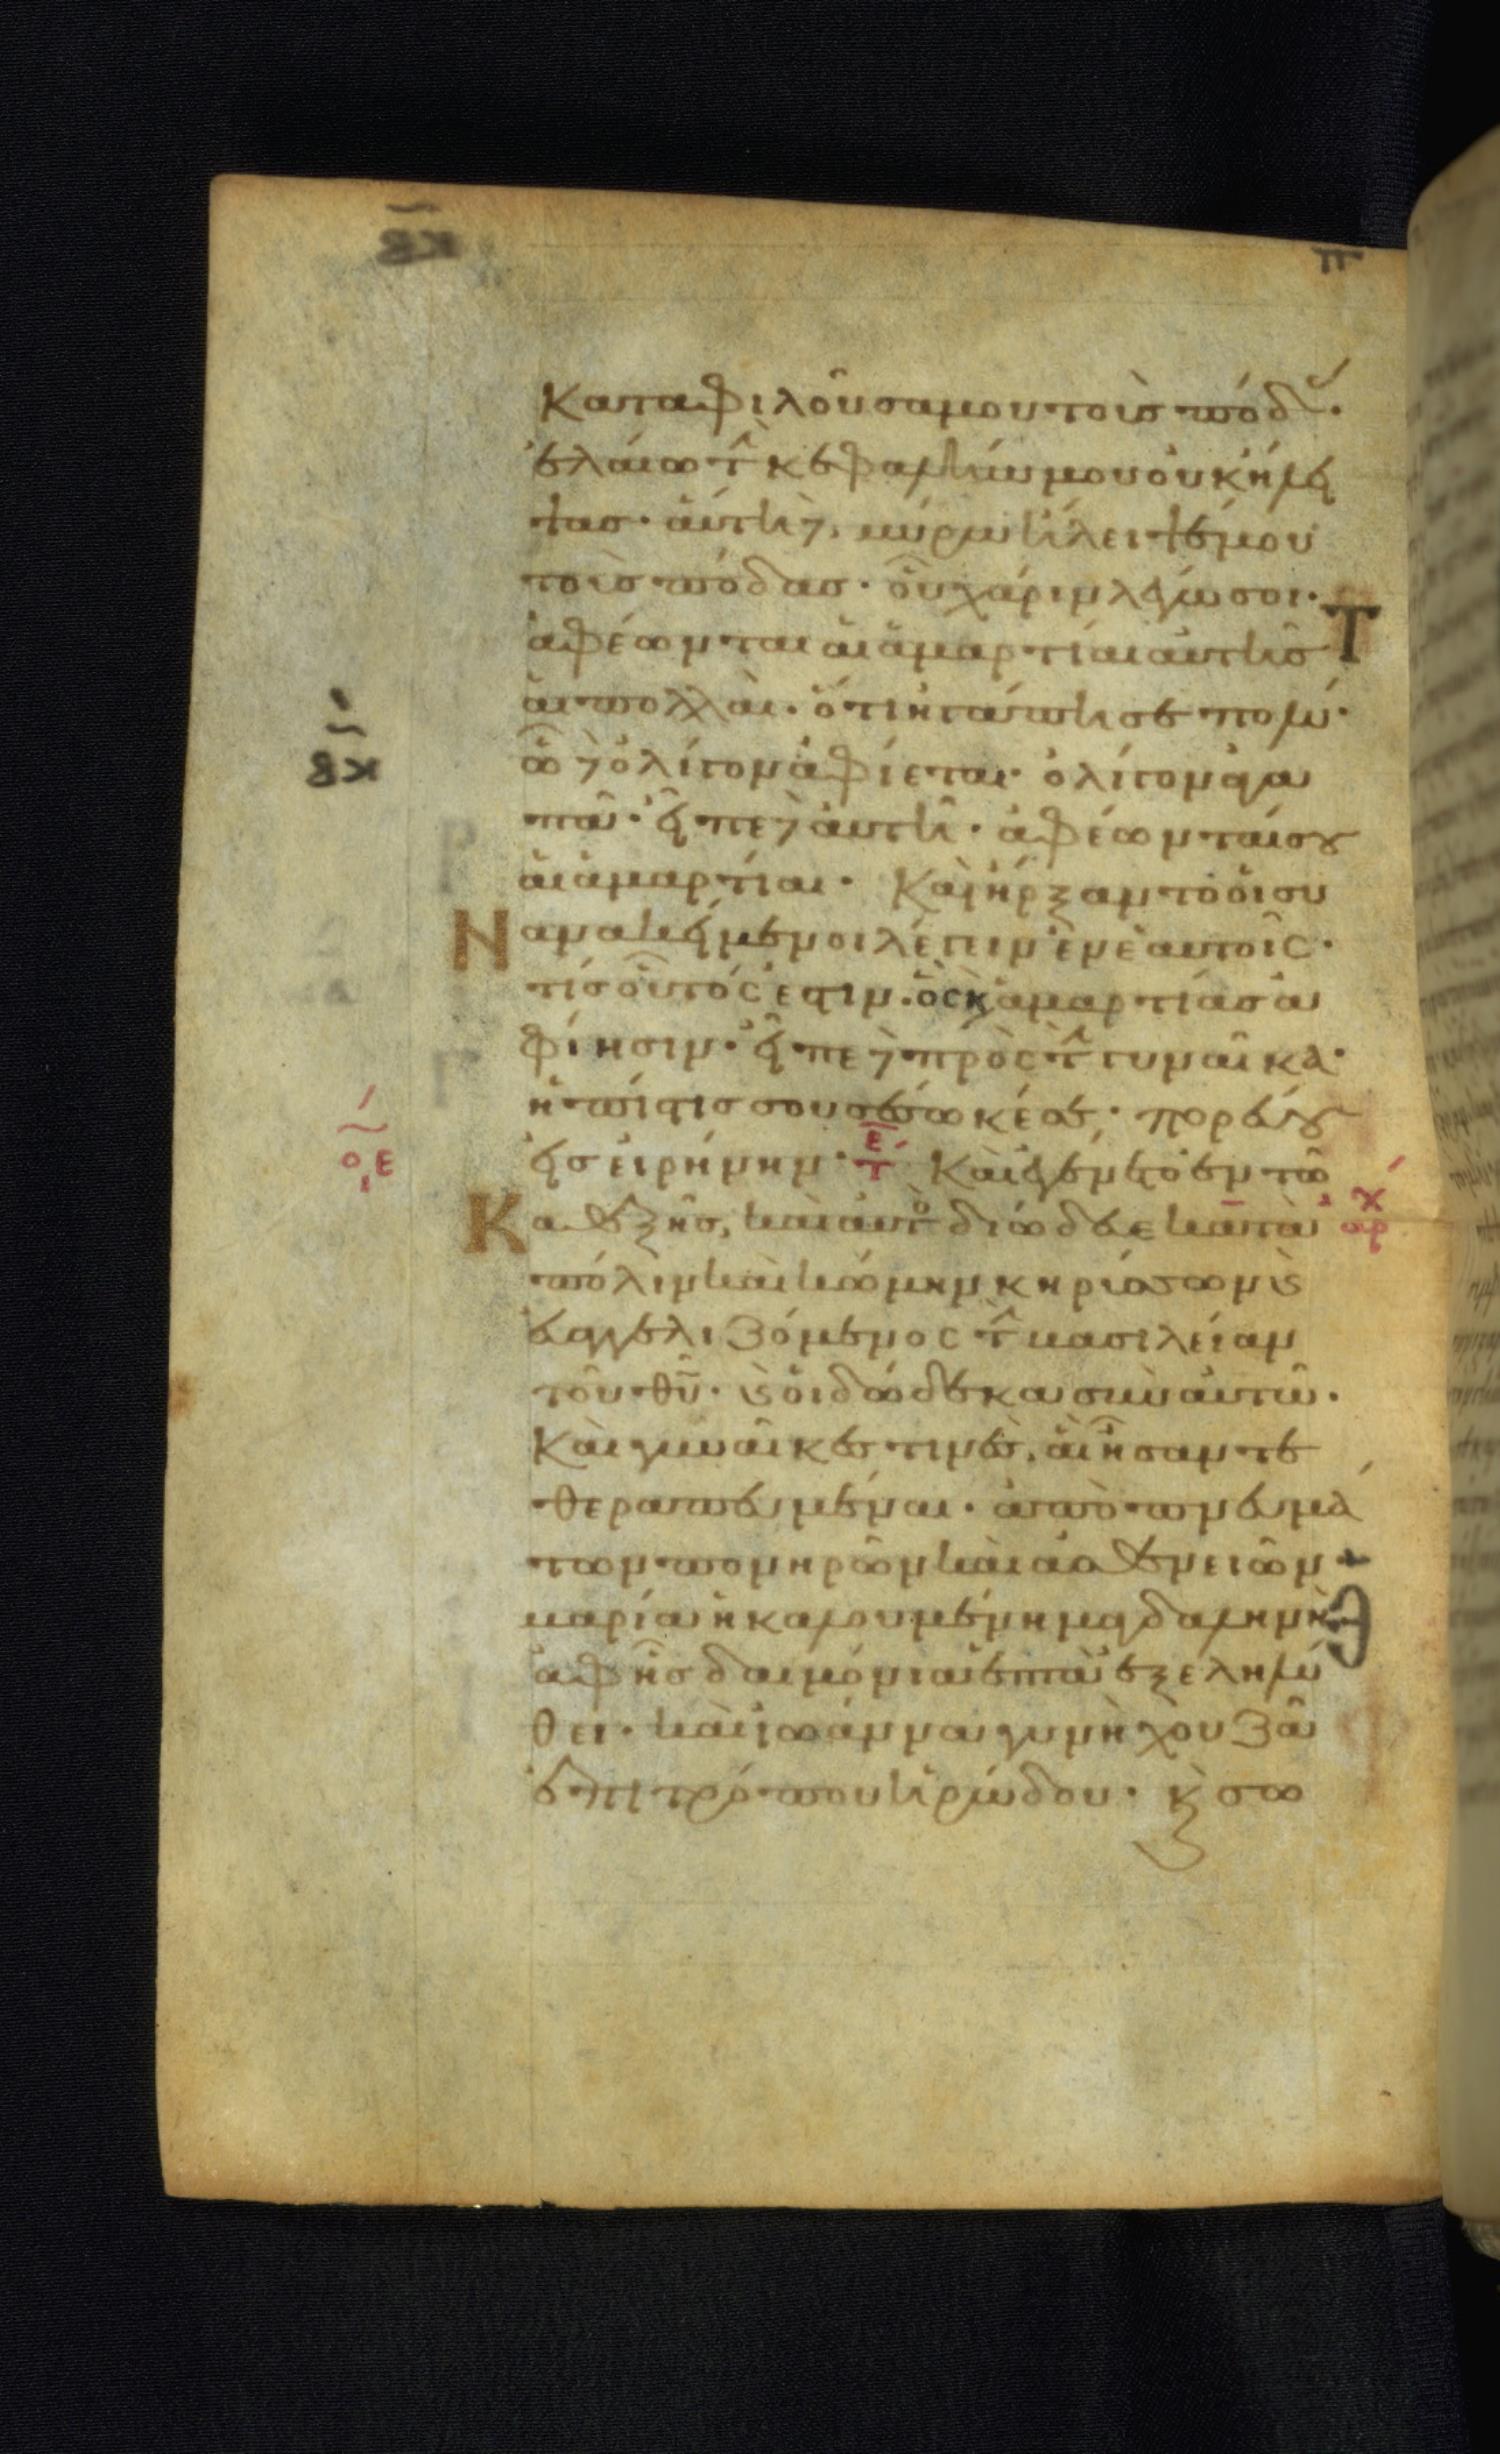 καταφιλοῦσα μου τοὺς πόδας·
ἐλαίω τὴν κεφαλήν μου οὐκ ἤλει
ψας· αὕτη δὲ, μύρω ἤλειψέ μου
τοὺς πόδας· οὗ χάριν λέγω σοι·
ἀφέωνται αἱ ἁμαρτίαι αὐτῆς
αἱ πολλαὶ· ὅτι ἠγάπησε πολύ·
ὧ δὲ ὀλίγον ἀφίεται· ὀλίγον ἀγα
πᾶ· εἶπε δὲ αὐτῆ· ἀφέωνταί σου
αἱ ἁμαρτίαι· Καὶ ἤρξαντο οἱ συ
νανακείμενοι λέγειν ἐν ἑαυτοῖς·
τίς οὗτός ἐστιν· ὃς κ ἁμαρτίας ἀ
φίησιν· εἶπε δὲ πρὸς τὴν γυναῖκα·
ἡ πίστις σου σέσωκέ σε· πορεύου
εἰς εἰρήνην· τε Καὶ ἐγένετο ἐν τῶ
καθεξῆς, καὶ αὐτὸς διώδευε κατὰ
πόλιν καὶ κώμην κηρύσσων κ
εὐαγγελιζόμενος τὴν βασιλείαν
τοῦ θυ· κ οἱ δώδεκα σὺν αὐτῶ·
Καὶ γυναῖκες τινὲς, αἳ ἦσαν τε
θεραπευμέναι· ἀπὸ πνευμά
των πονηρῶν καὶ ἀσθενειῶν
μαρία ἡ καλουμένη μαγδαληνὴ
ἀφ ἧς δαιμόνια ἑπτὰ ἐξεληλύ
θει· καὶ ἰωάννα γυνὴ χουζᾶ
ἐπιτρόπου ἡρώδου· κ σω